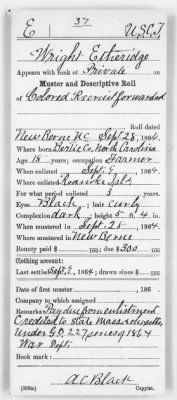 E | 37 | U.S.C.T.
Wright Etheridge
Appears with rank of Private on
Muster and Descriptive Roll
of Colored Recruits forwarded
Roll dated
New Berne N.C. Sept 28, 1864.
Where born Bertie Co, North Carolina
Age 18 years; occupation Farmer
When enlisted Sept 5, 1864.
Where enlisted Roanoke Isl
For what period enlisted 3 years.
Eyes Black; hair curly
Complexion dark; height 5 ft. 4 in.
When mustered in Sept 28, 1864.
Where mustered in New Berne
Bounty paid $ 100; due $ 300 100
Clothing account:
Last settled Sept 2, 1864; drawn since $ 100
Date of first muster , 186 .
Company to which assigned
Remarks: Pay due from enlistment
Credited to State Massachusetts,
under G.O. 227 1864
War Dept.
Book mark:
A C Black
(356c) Copyist.